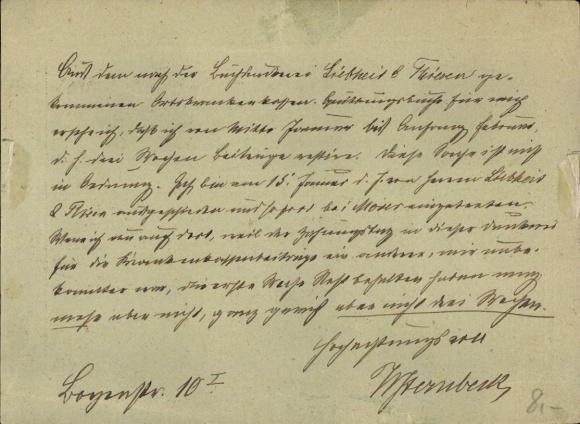 Aus dem nach der Buchdruckerei Liebheit & Thiesen ge-
kommenen Ortskrankenkassen-Quittungsbuche für mich
ersehe ich, daß ich von Mitte Januar bis Anfang Februar,
d. h. drei Wochen Beiträge restire. Diese Sache ist nicht
in Ordnung. Ich bin am 15. Januar d. J. von Herren Liebheit
& Thiesen ausgeschieden und sofort bei Moser eingetreten.
Wenn ich nun auch dort, weil der Zahlungstag in dieser Druckerei
für die Krankenkassenbeiträge ein anderer, mir unbe-
kannter war, die erste Woche Rest behalten haben mag,
mehr aber nicht, ganz gewiß aber nicht drei Wochen.
Hochachtungsvoll
Bergenstr. 10 I
Sternbeck
8.-